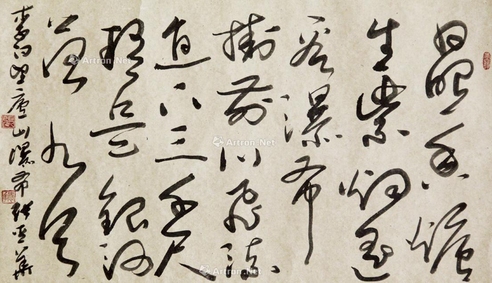 日照香炉
生紫烟遥
看瀑布
挂前川飞流
直下三千尺
疑是银河
落九天
李白望庐山瀑布